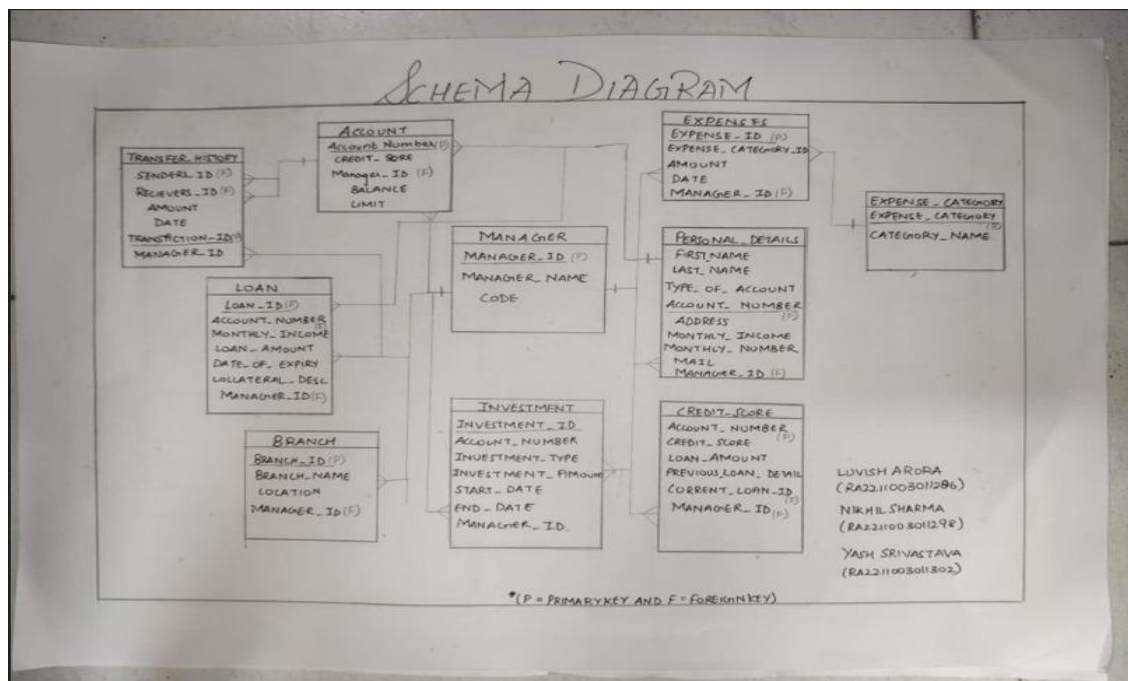 SCHEMA DIAGRAM
TRANSFER_HISTORY
SENDERS_ID (F)
RECIEVERS_ID (F)
AMOUNT
DATE
TRANSACTION_ID(P)
MANAGER_ID
ACCOUNT
Account Number(P)
CREDIT_SORE
Manager_ID (F)
BALANCE
LIMIT
EXPENSES
EXPENSE_ID (P)
EXPENSE_CATEGORY_ID
AMOUNT
DATE
MANAGER_ID (F)
EXPENSE_CATEGORY
EXPENSE_CATEGORY
(P)
CATEGORY_NAME
MANAGER
MANAGER_ID (P)
MANAGER_NAME
CODE
PERSONAL_DETAILS
FIRST_NAME
LAST_NAME
TYPE_OF_ACCOUNT
ACCOUNT_NUMBER
(P)
ADDRESS
MONTHLY_INCOME
MONTHLY_NUMBER
MAIL
MANAGER_ID (F)
LOAN
LOAN_ID (P)
ACCOUNT_NUMBER
(F)
MONTHLY_INCOME
LOAN_AMOUNT
DATE_OF_EXPIRY
COLLATERAL_DESC
MANAGER_ID(F)
BRANCH
BRANCH_ID (P)
BRANCH_NAME
LOCATION
MANAGER_ID (F)
INVESTMENT
INVESTMENT_ID
ACCOUNT_NUMBER
INVESTMENT_TYPE
INVESTMENT_AMOUNT
START_DATE
END_DATE
MANAGER_ID
CREDIT_SCORE
ACCOUNT_NUMBER
(P)
CREDIT_SCORE
LOAN_AMOUNT
PREVIOUS_LOAN_DETAIL
CURRENT_LOAN_ID
(F)
MANAGER_ID (F)
LUVISH ARORA
(RA2211003011286)
NIKHIL SHARMA
(RA2211003011298)
YASH SRIVASTAVA
(RA2211003011302)
*(P = PRIMARY KEY AND F = FOREIGN KEY)